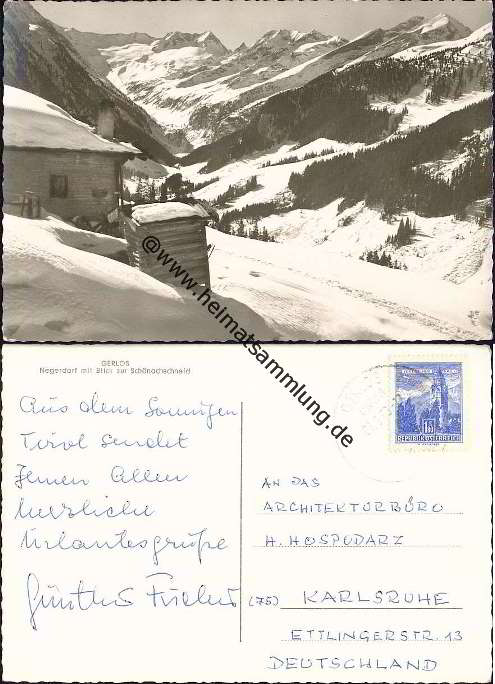 @www.heimatsammlung.de
GERLOS
Negerdorf mit Blick zur Schönachschneid
Aus dem Sonnigen
Tirol sendet
Ihnen Allen
herzliche
Urlaubsgrüße
Günther
1.50
REPUBLIK ÖSTERREICH
AN DAS
ARCHITEKTURBÜRO
H. HOSPUDARZ
(75) KARLSRUHE
ETTLINGERSTR. 13
DEUTSCHLAND